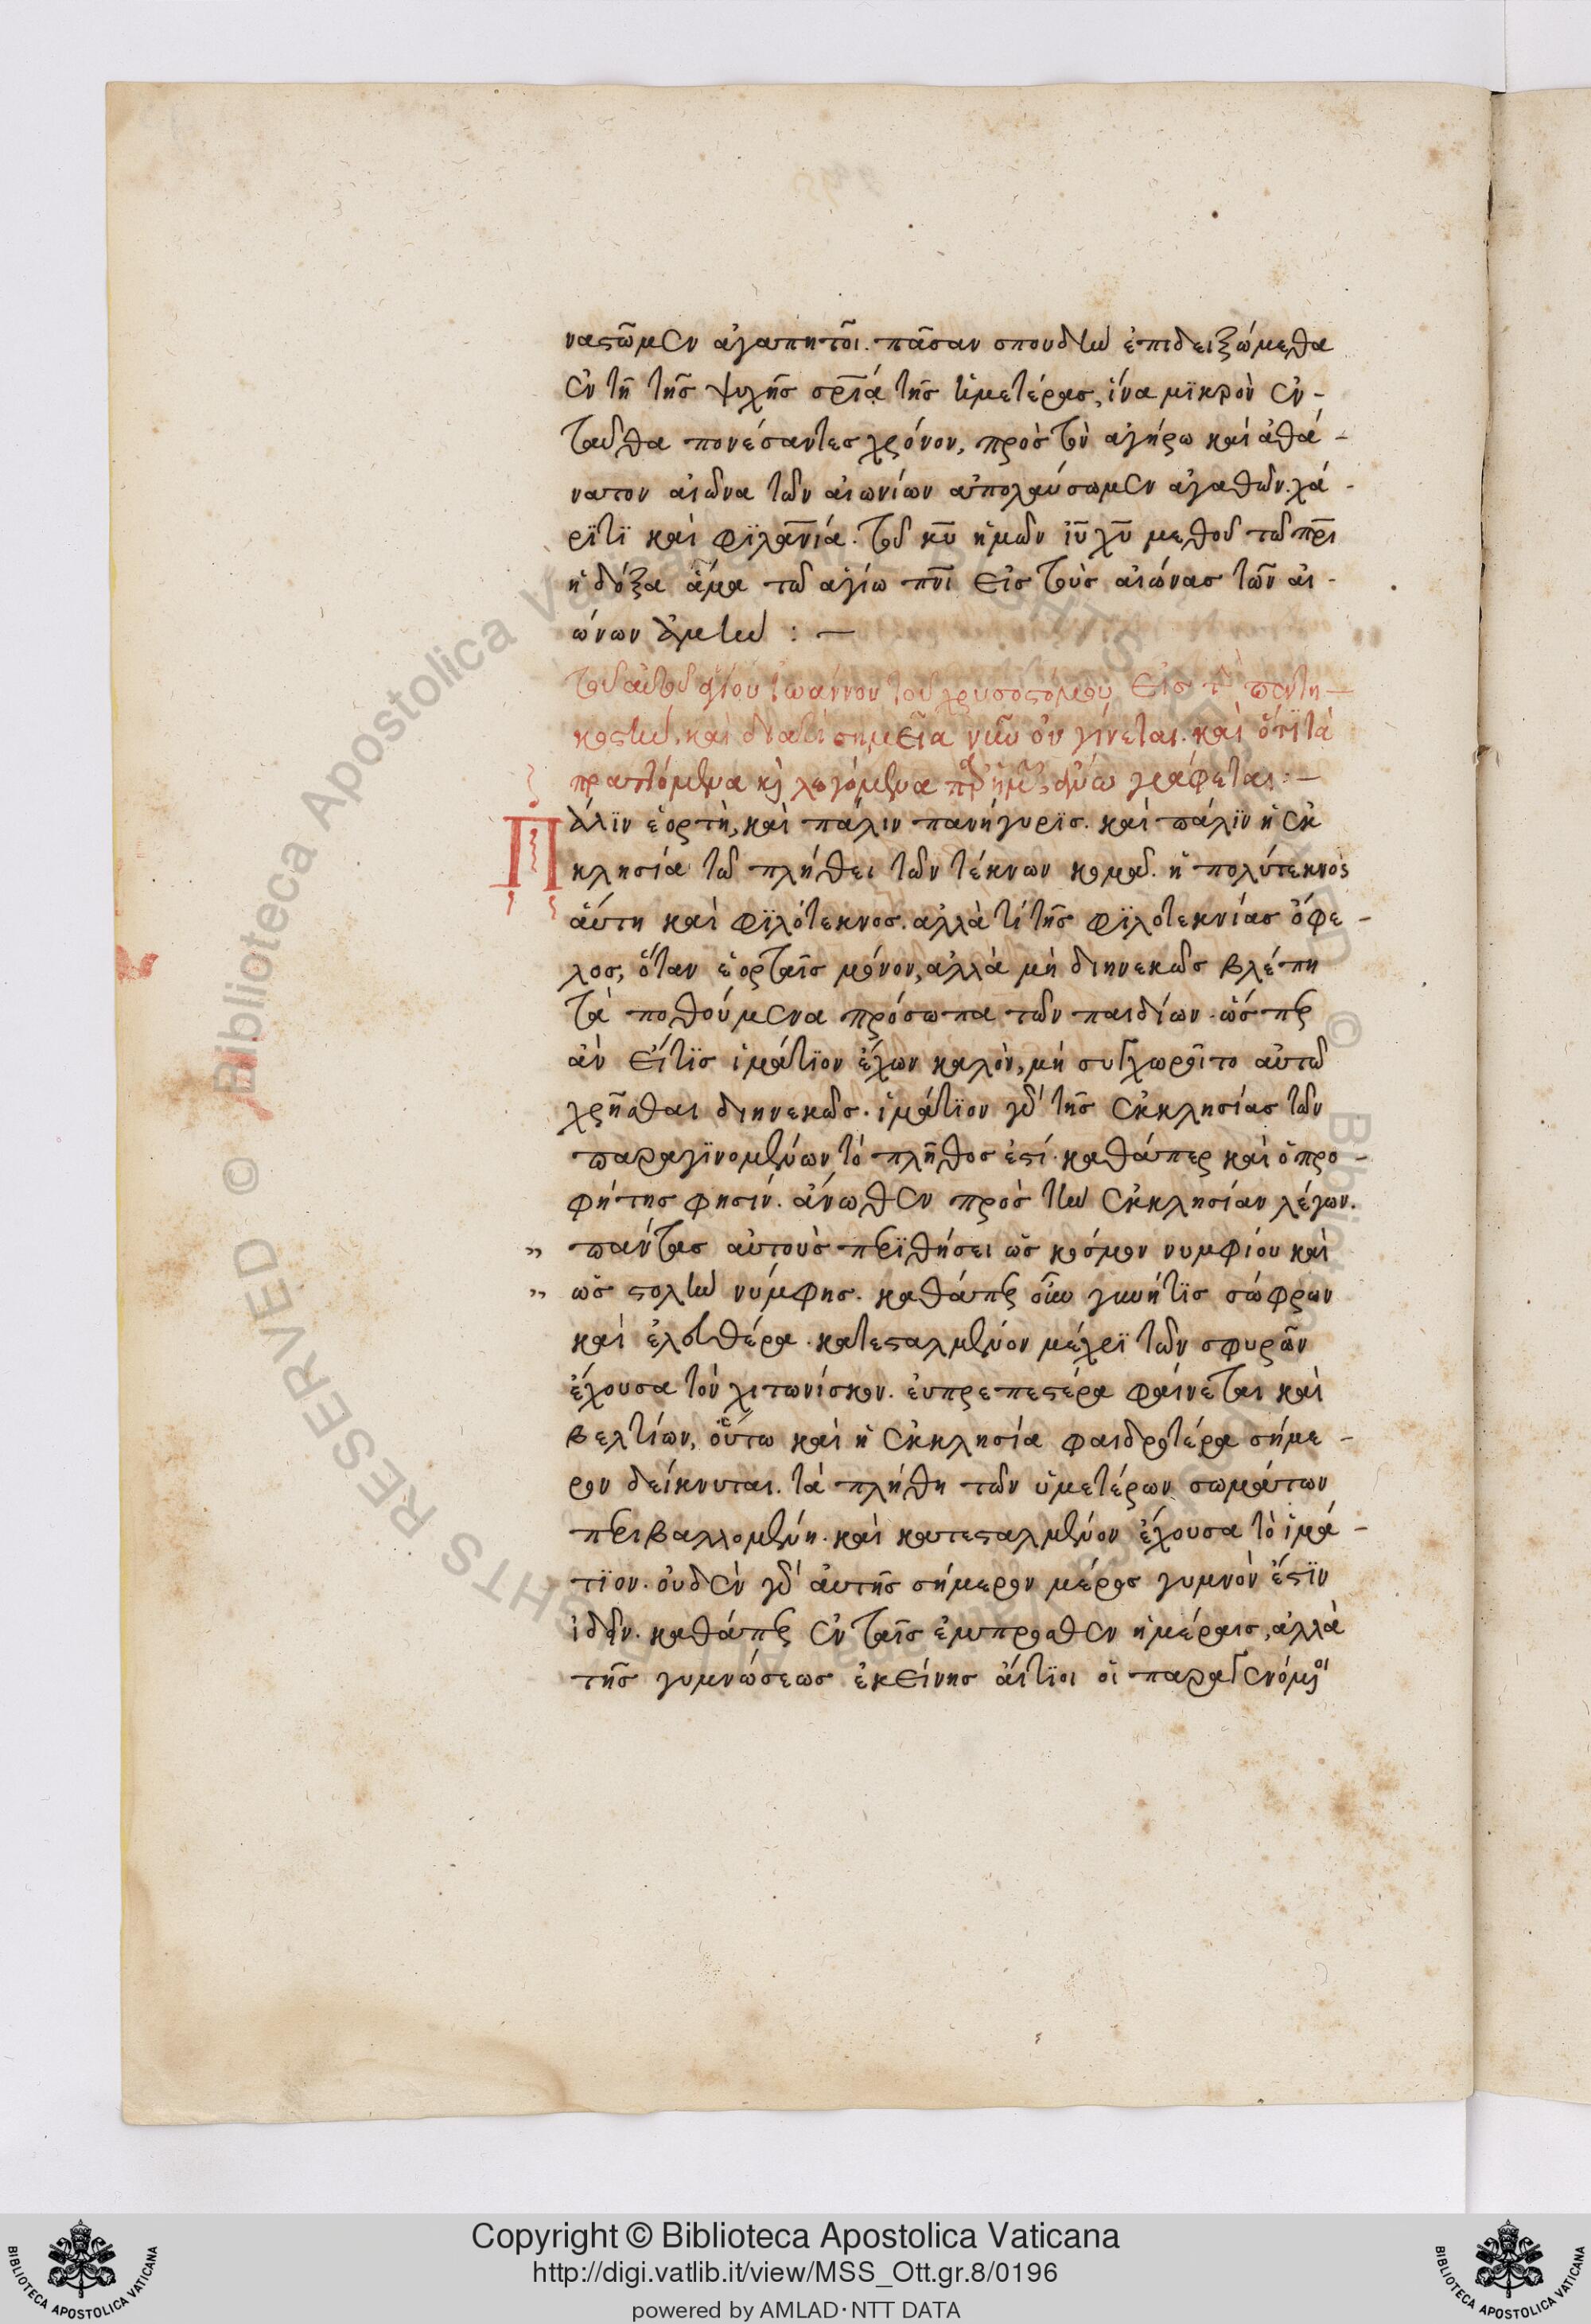 ναςῶμεν ἀγαπητοῖ. πᾶσαν σπουδὴν ἐπιδειξώμεθα
ἐν τῆ τῆς ψυχῆς σρ̅ια τῆς ἡμετέρας, ἵνα μϊκρὸν ἐν-
ταῦθα πονέσαντες χρόνον, πρὸς τὸν ἀγήρω καὶ ἀθά-
νατον αἰῶνα τῶν αἰωνίων ἀπολαύσωμεν ἀγαθῶν. χά-
ρϊτϊ καὶ φϊλαν̅ιά. τοῦ κυ̅ ἡμῶν ιυ̅ χυ̅ μεθοῦ τῶ πρ̅ι
ἡ δόξα ἅμα τῶ ἁγίω πν̅ι εἰς τοὺς αἰώνας τῶν αἰ-
ώνων ἀμήν : —
τοῦ αὐτοῦ ἁγίου ἰωάννου τοῦ χρυσοστόμου, εἰς τὴν πεντη-
κοςὴν. καὶ διατὶ σημεῖα νῦν οὐ γίνεται. καὶ ὅτϊ τὰ
πραττόμενα κὶ λεγόμενα παρ ἡμῶν, ἄνω γράφεται: —
Πάλϊν ἑορτὴ, καὶ πάλιν πανήγυρϊς. καὶ πάλϊν ἡ ἐκ
κλησία τῶ πλήθει τῶν τέκνων κομᾶ. ἡ πολύτεκνος
αὕτη καὶ φϊλότεκνος. ἀλλὰ τί τῆς φϊλοτεκνίας ὄφε-
λος, ὅταν ἑορταῖς μόνον, ἀλλὰ μὴ διηνεκῶς βλέπη
τὰ ποθούμενα πρόσωπα τῶν παιδίων. ὥσπερ
ἂν εἴτϊς ἱμάτϊον ἔχων καλὸν, μὴ συγχωροῖτο αὐτῶ
χρῆσθαι διηνεκῶς. ἱμάτϊον γὰρ τῆς ἐκκλησίας τῶν
παραγϊνομένων τὸ πλῆθος ἐςί. καθάπερ καὶ ὁ προ-
φήτης φησίν. ἄνωθεν πρὸς τὴν ἐκκλησίαν λέγων.
" πάντας αὐτοὺς περϊθήσει ὡς κόσμον νυμφίου καὶ
" ὡς ςολὴν νύμφης. καθάπερ οὖν γυνήτϊς σώφρων
καὶ ἐλευθέρα. κατεςαλμένον μέχρϊ τῶν σφυρῶν
ἔχουσα τὸν χιτωνίσκον. εὐπρεπεςέρα φαίνεται καὶ
βελτίων, οὕτω καὶ ἡ ἐκκλησία φαιδροτέρα σήμε-
ρον δείκνυται. τὰ πλήθη τῶν ὑμετέρων σωμάτων
περιβαλλομένη. καὶ κατεςαλμένον ἔχουσα τὸ ἱμά-
τϊον. οὐδὲν γὰρ αὐτῆς σήμερον μέρος γυμνὸν ἔςϊν
ἰδεῖν. καθάπερ ἐν ταῖς ἔμπροσθεν ἡμέραις, ἀλλὰ
τῆς γυμνώσεως ἐκείνης αἴτϊοι οἱ παραγενόμενοι
Copyright © Biblioteca Apostolica Vaticana
http://digi.vatlib.it/view/MSS_Ott.gr.8/0196
powered by AMLAD·NTT DATA